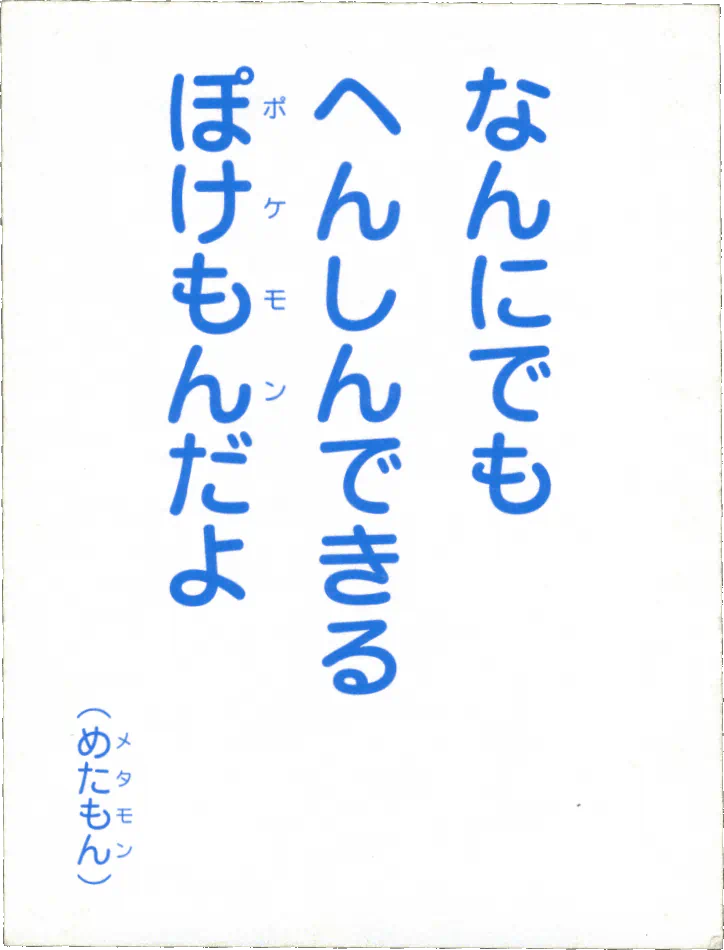 なんにでも
へんしんできる
ぽけもんだよ
ポケモン
(めたもん)
メタモン